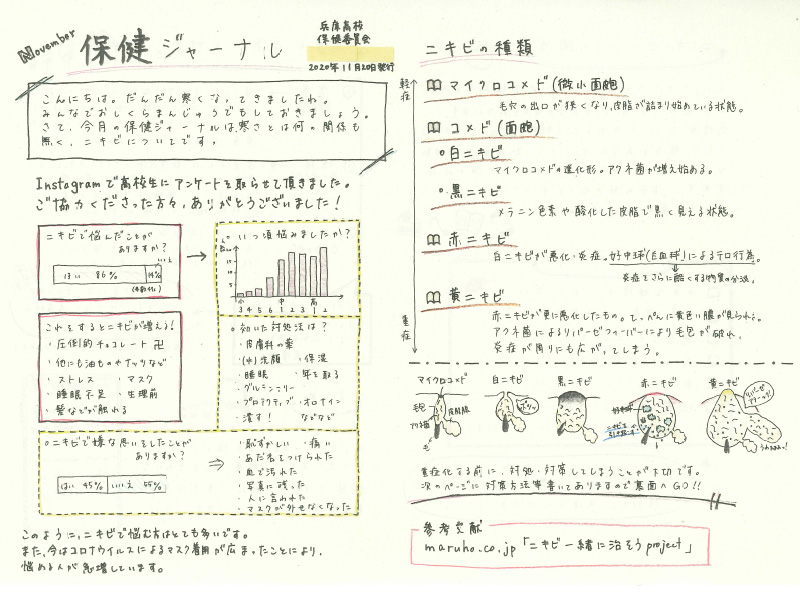 November
保健ジャーナル
兵庫高校
保健委員会
2020年11月20日発行
こんにちは。だんだん寒くなってきましたね。
みんなでおしくらまんじゅうでもしておきましょう。
さて、今月の保健ジャーナルは、寒さとは何の関係も
無く、ニキビについてです。
Instagramで高校生にアンケートを取らせて頂きました。
ご協力くださった方々、ありがとうございました！
ニキビで悩んだことが
ありますか？
いいえ
はい 86% 14%
→
。いつ頃悩みましたか？
15
10
5
3 4 5 6 1 2 3 1 2
小 中 高
これをするとニキビが増える！
・圧倒的チョコレート 卍
・他にも油ものやナッツなど
・ストレス ・マスク
・睡眠不足 ・生理前
・髪などが触れる
。効いた対処法は？
・皮膚科の薬
・(水)洗顔 ・保湿
・睡眠 ・年を取る
・グルテンフリー
・プロアクティブ ・オロナイン
・潰す！ などなど
。ニキビで嫌な思いをしたことが
ありますか？
はい 45% いいえ 55%
⇒
・恥ずかしい ・痛い
・あだ名をつけられた
・血で汚れた
・写真に残った
・人に言われた
・マスクが外せなくなった
このように、ニキビで悩む方はとても多いです。
また、今はコロナウイルスによるマスク着用が広まったことにより、
悩める人が急増しています。
ニキビの種類
軽症
マイクロコメド(微小面皰)
毛穴の出口が狭くなり、皮脂が詰まり始めている状態。
コメド(面皰)
。白ニキビ
マイクロコメドの進化形。アクネ菌が増え始める。
。黒ニキビ
メラニン色素や酸化した皮脂で黒く見える状態。
赤ニキビ
白ニキビが悪化・炎症。好中球(白血球)によるテロ行為。
炎症でさらに酷くする物質の分泌。
黄ニキビ
重症
赤ニキビが更に悪化したもの。てっぺんに黄色い膿が見られる。
アクネ菌によるリパーゼフィーバーにより毛包が破れ、
炎症が周りにも広がってしまう。
マイクロコメド 白ニキビ 黒ニキビ 赤ニキビ 黄ニキビ
毛包
皮脂腺
アクネ菌
毛
好中球
重症化する前に、対処・対策してしまうことが大切です。
次のページに対策方法等書いてありますので裏面へGO!!
参考文献
maruho.co.jp「ニキビ一緒に治そうproject」